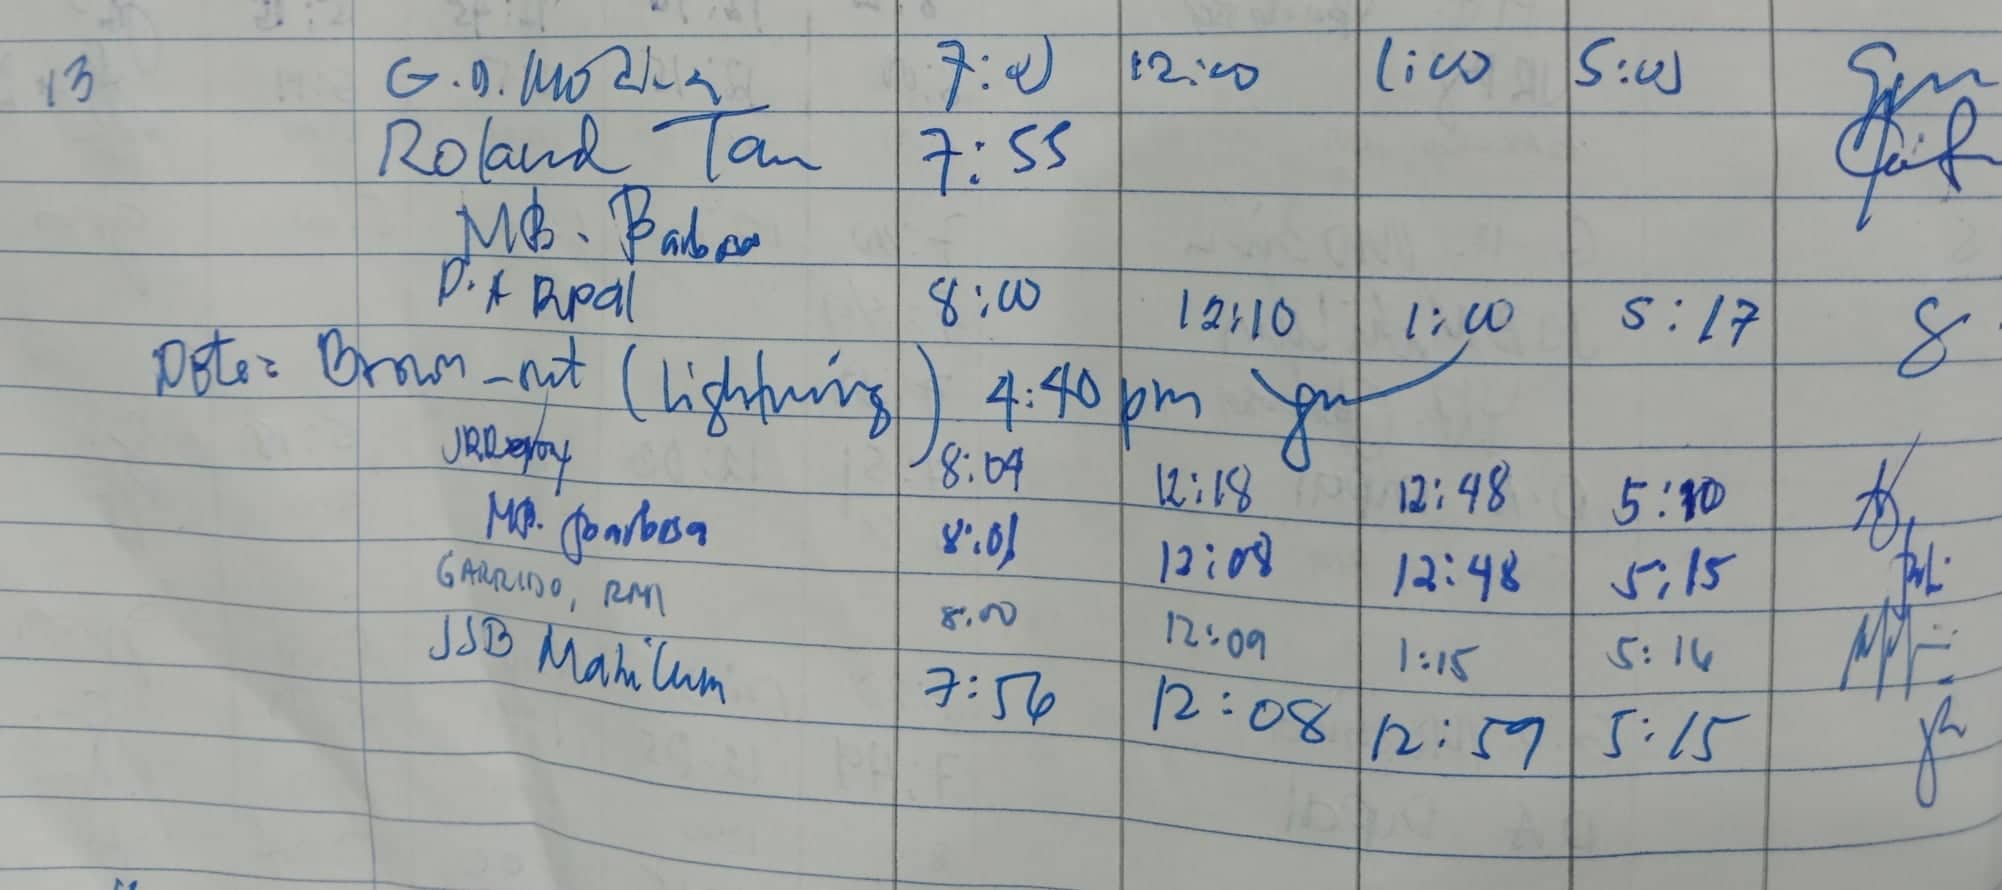 13 G.D. 7:00 12:00 1:00 5:00
Roland Tan 7:55
MB. Barbosa
D.A Rpal 8:00 12:10 1:00 5:17
Note: Brown-out (lightning) 4:40 pm
8:04 12:18 12:48 5:10
MB. Barbosa 8:01 12:08 12:48 5:15
GARRIDO, RM 8:00 12:09 1:15 5:16
JSB Mahilum 7:56 12:08 12:59 5:15